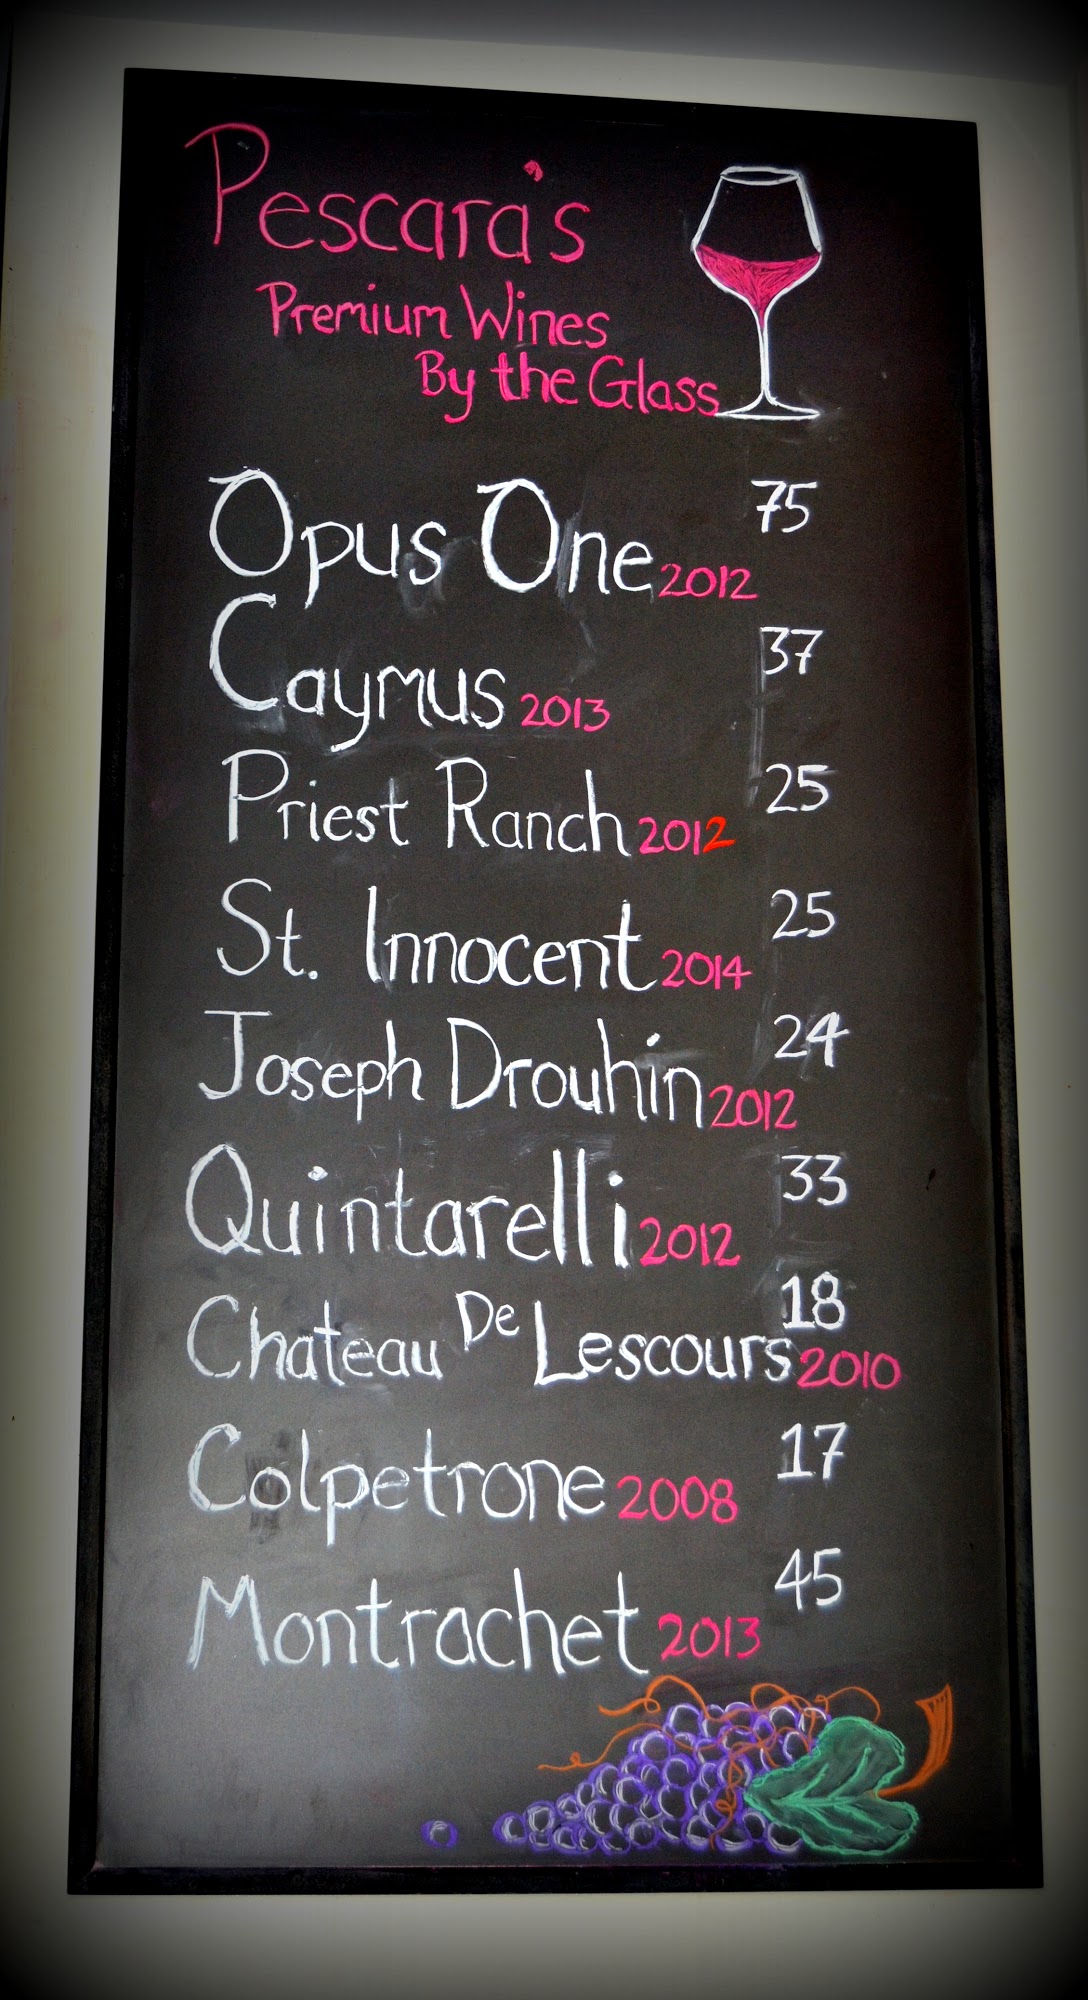 Pescara's
Premium Wines
By the Glass
Opus One 2012 75
Caymus 2013 37
Priest Ranch 2012 25
St. Innocent 2014 25
Joseph Drouhin 2012 24
Quintarelli 2012 33
Chateau De Lescours 2010 18
Colpetrone 2008 17
Montrachet 2013 45